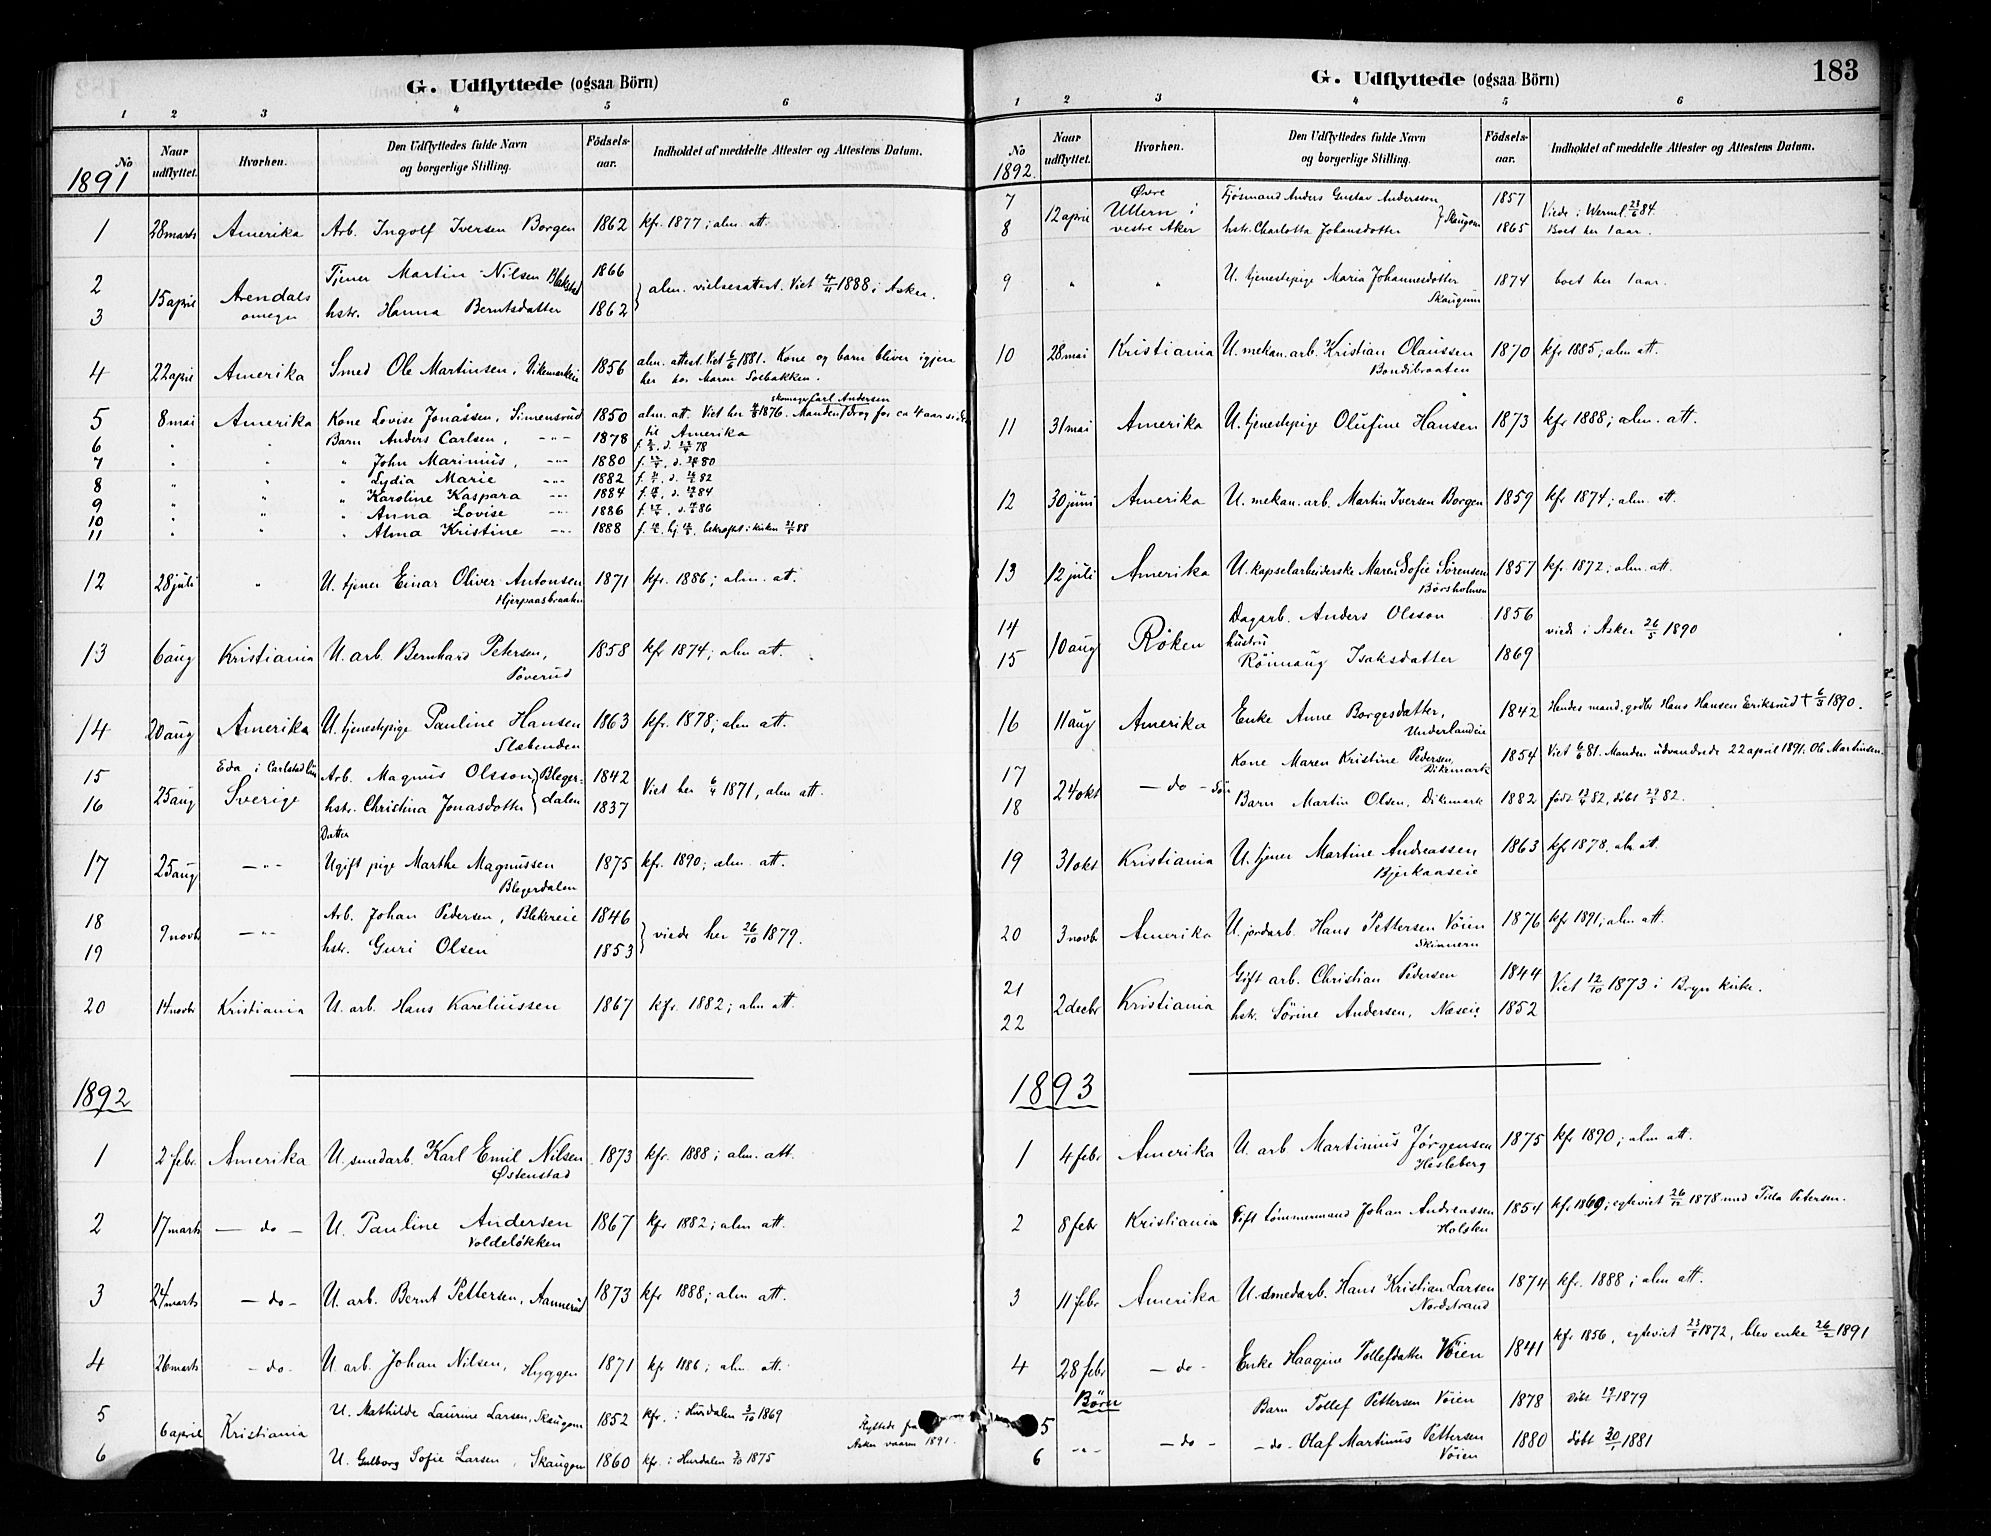 G. Udflyttede (ogsaa Börn)
1 2 3 4 5 6
No Naar udflyttet. Hvorhen. Den Udflyttedes fulde Navn og borgerlige Stilling. Födsels-aar. Indholdet af meddelte Attester og Attestens Datum.
1891
1 28 marts Amerika Arb. Ingolf Iversen Borgen 1862 kfr. 1877; alm. att.
2 15 april Arendals omegn Tjener Martin Nilsen Blakstad 1866 } alm. vielsesattest. Viet 4/11 1888 i Asker.
3 hstr. Hanna Berntsdatter 1862
4 22 april Amerika Smed Ole Martinsen, Dikemarkeie 1856 alm. attest. Viet 6/6 1881. Kone og barn bliver igjen
her hos Maren Solbakken.
5 8 mai Amerika Kone Lovise Jonassen, Simensrud 1850 alm. att. Viet her 1876. Manden skomager Carl Andersen drog for ca 4 aar siden
til Amerika
6 " " Barn Anders Carlsen, -"- 1878 78
7 " " " John Marinius, -"- 1880 80
8 " " " Lydia Marie -"- 1882 82
9 " " " Karoline Kaspara -"- 1884 84
10 " " " Anna Lovise -"- 1886 86
11 " " " Alma Kristine -"- 1888 bekræftet i kirken 88
12 28 juli " U. tjener Einar Oliver Antonsen 1871 kfr. 1886; alm. at.
Hjerpaasbraaten
13 6 aug Kristiania U. arb. Bernhard Petersen, 1858 kfr 1874; alm att.
Poverud
14 20 aug Amerika U. tjenestepige Pauline Hansen 1863 kfr. 1878; alm att.
Slæbenden
15 25 aug Eda i Carlstad län Sverige Arb. Magnus Olsson } Bleger- 1842 Viet her 6/4 1871, alm att.
16 hstr. Christina Jonasdotter } dalen 1837
Datter
17 25 aug -"- Ugift pige Marthe Magnussen 1875 kfr. 1890; alm. att.
Blegerdalen
18 9 novb -"- Arb. Johan Pedersen, Blekereie 1846 } viede her 26/10 1879.
19 hstr. Guri Olsen 1853
20 14 novbr Kristiania U. arb. Hans Kareliussen 1867 kfr. 1882; alm att.
1892
1 2 febr. Amerika U. smedarb. Karl Emil Nilsen 1873 kfr. 1888; alm. att.
Østenstad
2 17 marts — do — U. Pauline Andersen 1867 kfr 1882; alm att.
Voldeløkken
3 24 marts — do — U. arb. Bernt Pettersen, Aannerud 1873 kfr 1888; alm att.
4 26 marts — do — U arb. Johan Nilsen, Hyggen 1871 kfr 1886; alm. att.
5 6 april Kristiania U. Mathilde Laurine Larsen, Skaugum 1852 kfr. i Hurdalen 3/10 1869 Flyttede fra
Asker vaaren 1891.
6 U. Gulborg Sofie Larsen, Skaugum 1860 kfr. i Hurdalen 3/10 1875
G. Udflyttede (ogsaa Börn) 183
1 2 3 4 5 6
No Naar udflyttet. Hvorhen. Den Udflyttedes fulde Navn og borgerlige Stilling. Födsels-aar. Indholdet af meddelte Attester og Attestens Datum.
1892.
7 12 april Øvre Ullern i vestre Aker Fjøsmand Anders Gustav Andersson } Skaugum 1857 Viede i Wermel. 23/6 84.
8 hstr. Charlotta Johansdotter 1865 Boet her 1 aar.
9 " " U. tjenestepige Maria Johannesdotter 1874 boet her 1 aar.
Skaugum
10 28 mai Kristiania U. mekan. arb. Kristian Olaussen 1870 kfr 1885; alm att.
Bondibraaten
11 31 mai Amerika U. tjenestepige Olufine Hansen 1873 kfr 1888; alm. att.
12 30 juni Amerika U. mekan. arb. Martin Iversen Borgen 1859 kfr 1874; alm. att.
13 12 juli Amerika U. kapselarbeiderske Maren Sofie Sørensen 1857 kfr. 1872; alm. att.
Børsholmen
14 10 aug Røken Dagarb. Anders Olsson 1856 viede i Asker 26/5 1890
hustru
15 Rönnaug Isaksdatter 1869
16 11 aug Amerika Enke Anne Borgesdatter, 1842 Hendes mand, gadbr Hans Hansen Eriksrud † 6/3 1890.
Underlandeie
17 24 okt — do — Kone Maren Kristine Pedersen, 1854 Viet 6/6 81. Manden udvandrede 22 april 1891. Ole Martinsen.
Dikemark
18 Søn Barn Martin Olsen, Dikemark 1882 født 82, døbt 82.
19 31 okt Kristiania U. tjener Martine Andreassen 1863 kfr 1878. alm att.
Bjerkaaseie
20 3 novbr Amerika U. jordarb. Hans Pettersen Vöien 1876 kfr 1891; alm att.
Skinnern
21 2 decbr Kristiania Gift arb. Christian Pedersen 1844 Viet 12/10 1873 i Bryn kirke.
22 hstr. Sörine Andersen, Næseie 1852
1893
1 4 febr Amerika U. arb Martinius Jørgensen 1875 kfr 1890; alm att.
Hesleberg
2 8 febr Kristiania Gift tømmermand Johan Andreassen 1854 kfr. 1869; egteviet 26/12 1878 med Tilla Petersen.
Holsten
3 11 febr Amerika U. smedarb. Hans Kristian Larsen 1874 kfr. 1888; alm att.
Nordstrand
4 28 febr — do — Enke Haagine Tollefsdatter Vöien 1841 kfr 1856, egteviet 1872, blev enke 26/2 1891
Børn
5 Barn Tollef Pettersen Vöien 1878 døbt 1879
6 -"- — do — — do — Olaf Martinus Pettersen 1880 døbt 30/1 1881
Vöien